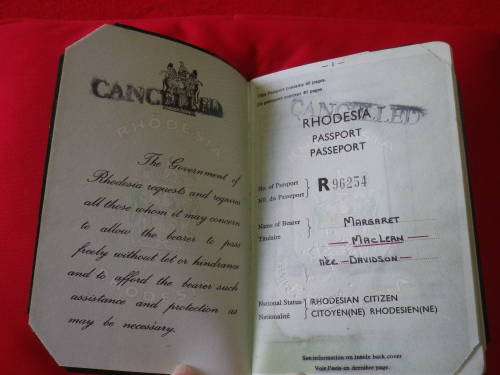 CANCELLED
The Government of
Rhodesia requests and requires
all those whom it may concern
to allow the bearer to pass
freely without let or hindrance
and to afford the bearer such
assistance and protection as
may be necessary.
RHODESIA
- 1 -
This Passport contains 40 pages.
Ce passeport contient 40 pages.
CANCELLED
RHODESIA
PASSPORT
PASSEPORT
No. of Passport
NO. du Passeport
R 96254
Name of Bearer
Titulaire
MARGARET
MACLEAN
née DAVIDSON
National Status
Nationalité
RHODESIAN CITIZEN
CITOYEN(NE) RHODESIEN(NE)
See information on inside back cover
Voir l'avis en dernière page.